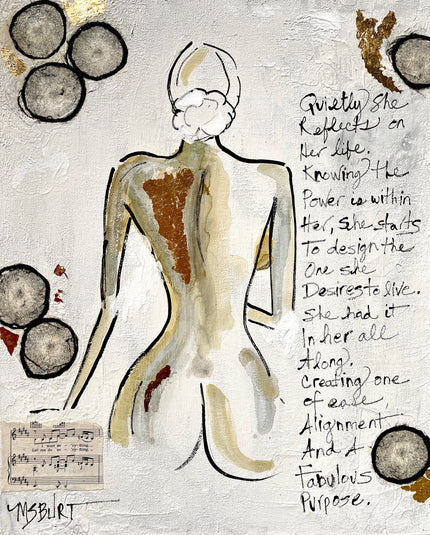 Quietly She
Reflects on
Her life.
Knowing the
Power is within
Her, She starts
To design the
One she
Desires to live.
She had it
In her all
Along.
Creating one
of ease,
Alignment
And A
Fabulous
Purpose.
MSBURT